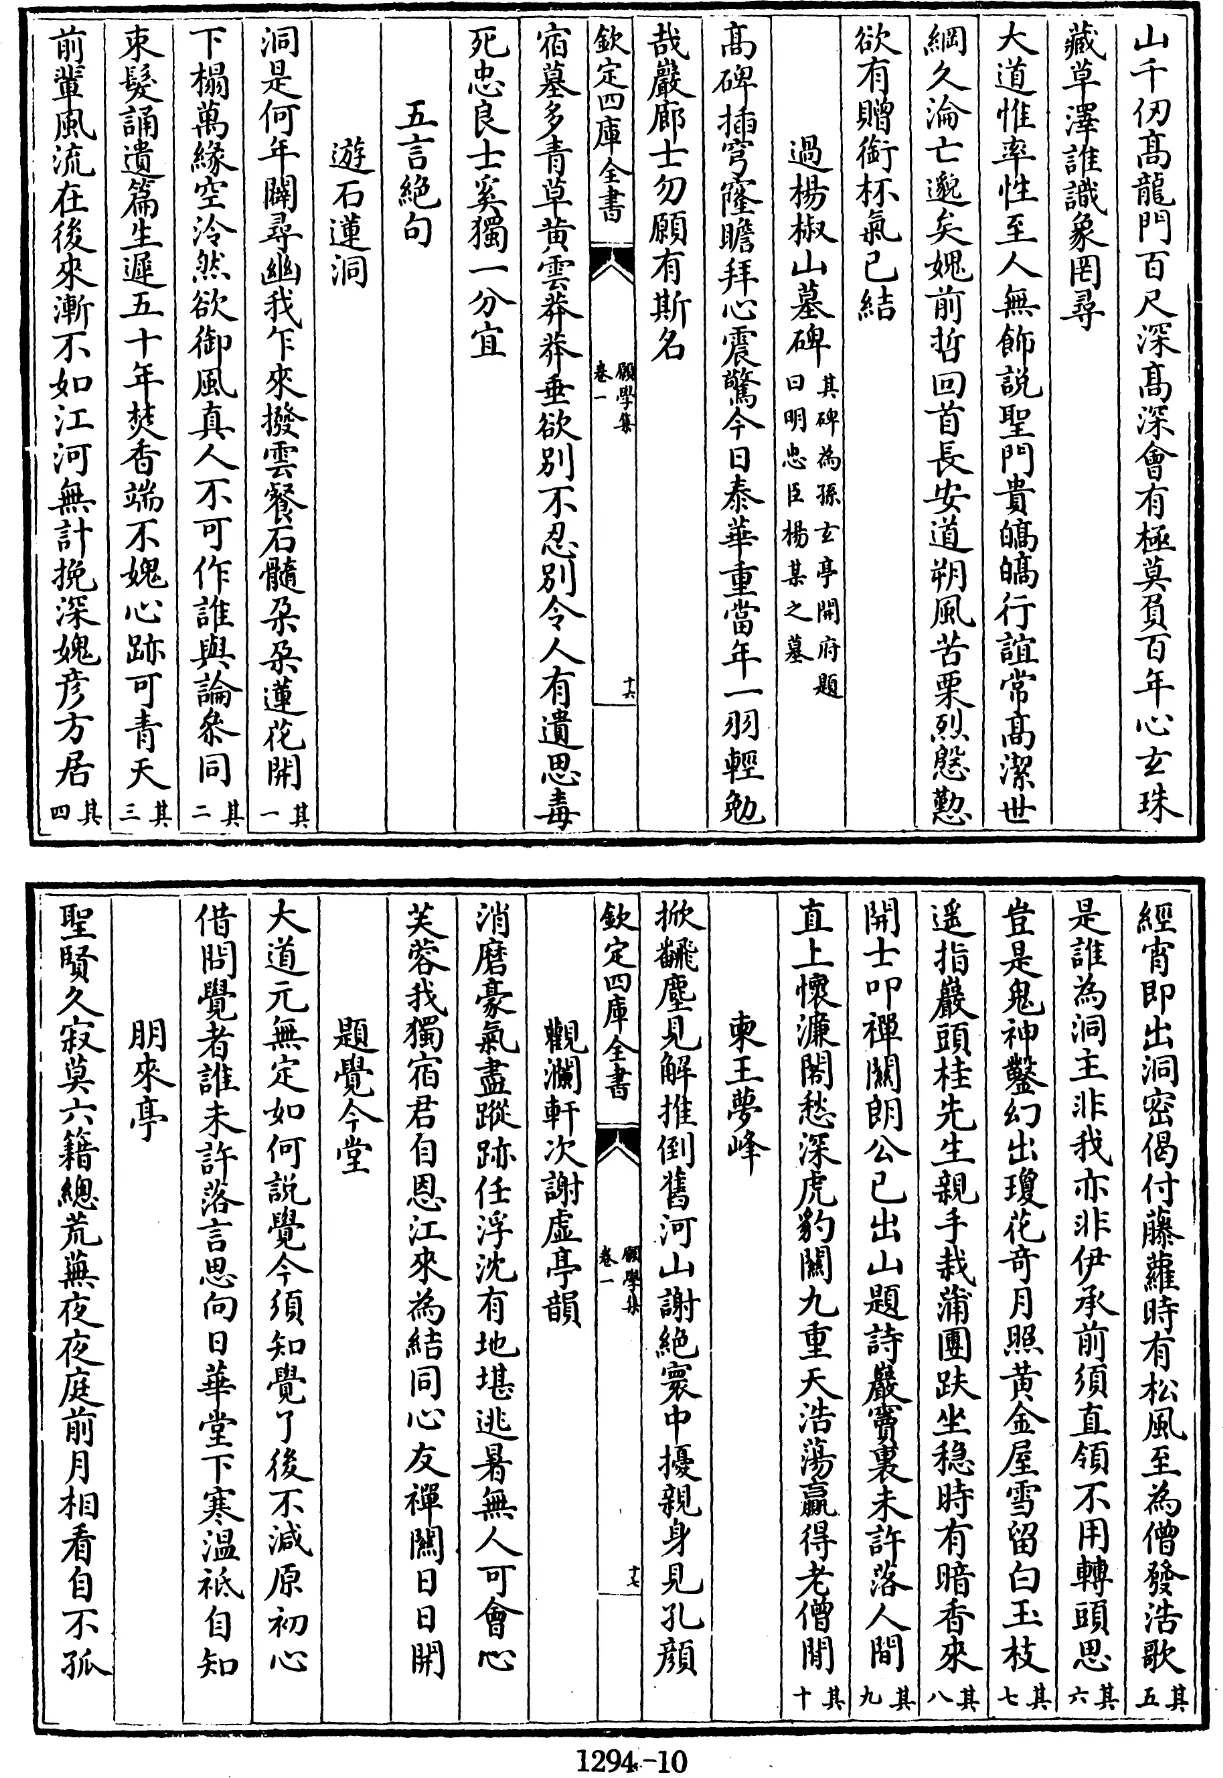 山千仞髙龍門百尺深髙深會有極莫負百年心玄珠
藏草澤誰識象罔尋
大道惟率性至人無飾説聖門貴皜皜行誼常髙潔世
綱久淪亡邈矣媿前哲回首長安道朔風苦栗烈慇懃
欲有贈銜杯氣已結
過楊椒山墓碑其碑為孫玄亭開府題
曰明忠臣楊某之墓
髙碑插穹窿瞻拜心震驚今日泰華重當年一羽輕勉
哉巖廊士勿願有斯名
欽定四庫全書
願學集
卷一
十六
宿墓多青草黄雲莽莽垂欲别不忍别令人有遺思毒
死忠良士奚獨一分宜
五言絶句
遊石蓮洞
洞是何年闢尋幽我乍來撥雲餐石髓朶朶蓮花開其一
下榻萬緣空泠然欲御風真人不可作誰與論叅同其二
束髮誦遺篇生遲五十年焚香端不媿心跡可青天其三
前輩風流在後來漸不如江河無計挽深媿彦方居其四
經宵即出洞密偈付藤蘿時有松風至為僧發浩歌其五
是誰為洞主非我亦非伊承前須直領不用轉頭思其六
豈是鬼神鑿幻出瓊花奇月照黄金屋雪留白玉枝其七
遥指巖頭桂先生親手栽蒲團趺坐穏時有暗香來其八
開士叩禪關朗公已出山題詩巖竇裏未許落人間其九
直上懷濂閣愁深虎豹關九重天浩蕩贏得老僧閒其十
柬王夢峰
掀飜塵見解推倒舊河山謝絶寰中擾親身見孔顔
欽定四庫全書
願學集
卷一
十七
觀瀾軒次謝虛亭韻
消磨豪氣盡蹤跡任浮沈有地堪逃暑無人可會心
芙蓉我獨宿君自恩江來為結同心友禪關日日開
題覺今堂
大道元無定如何説覺今須知覺了後不減原初心
借問覺者誰未許落言思向日華堂下寒温祗自知
朋來亭
聖賢久寂莫六籍總荒蕪夜夜庭前月相看自不孤
1294-10